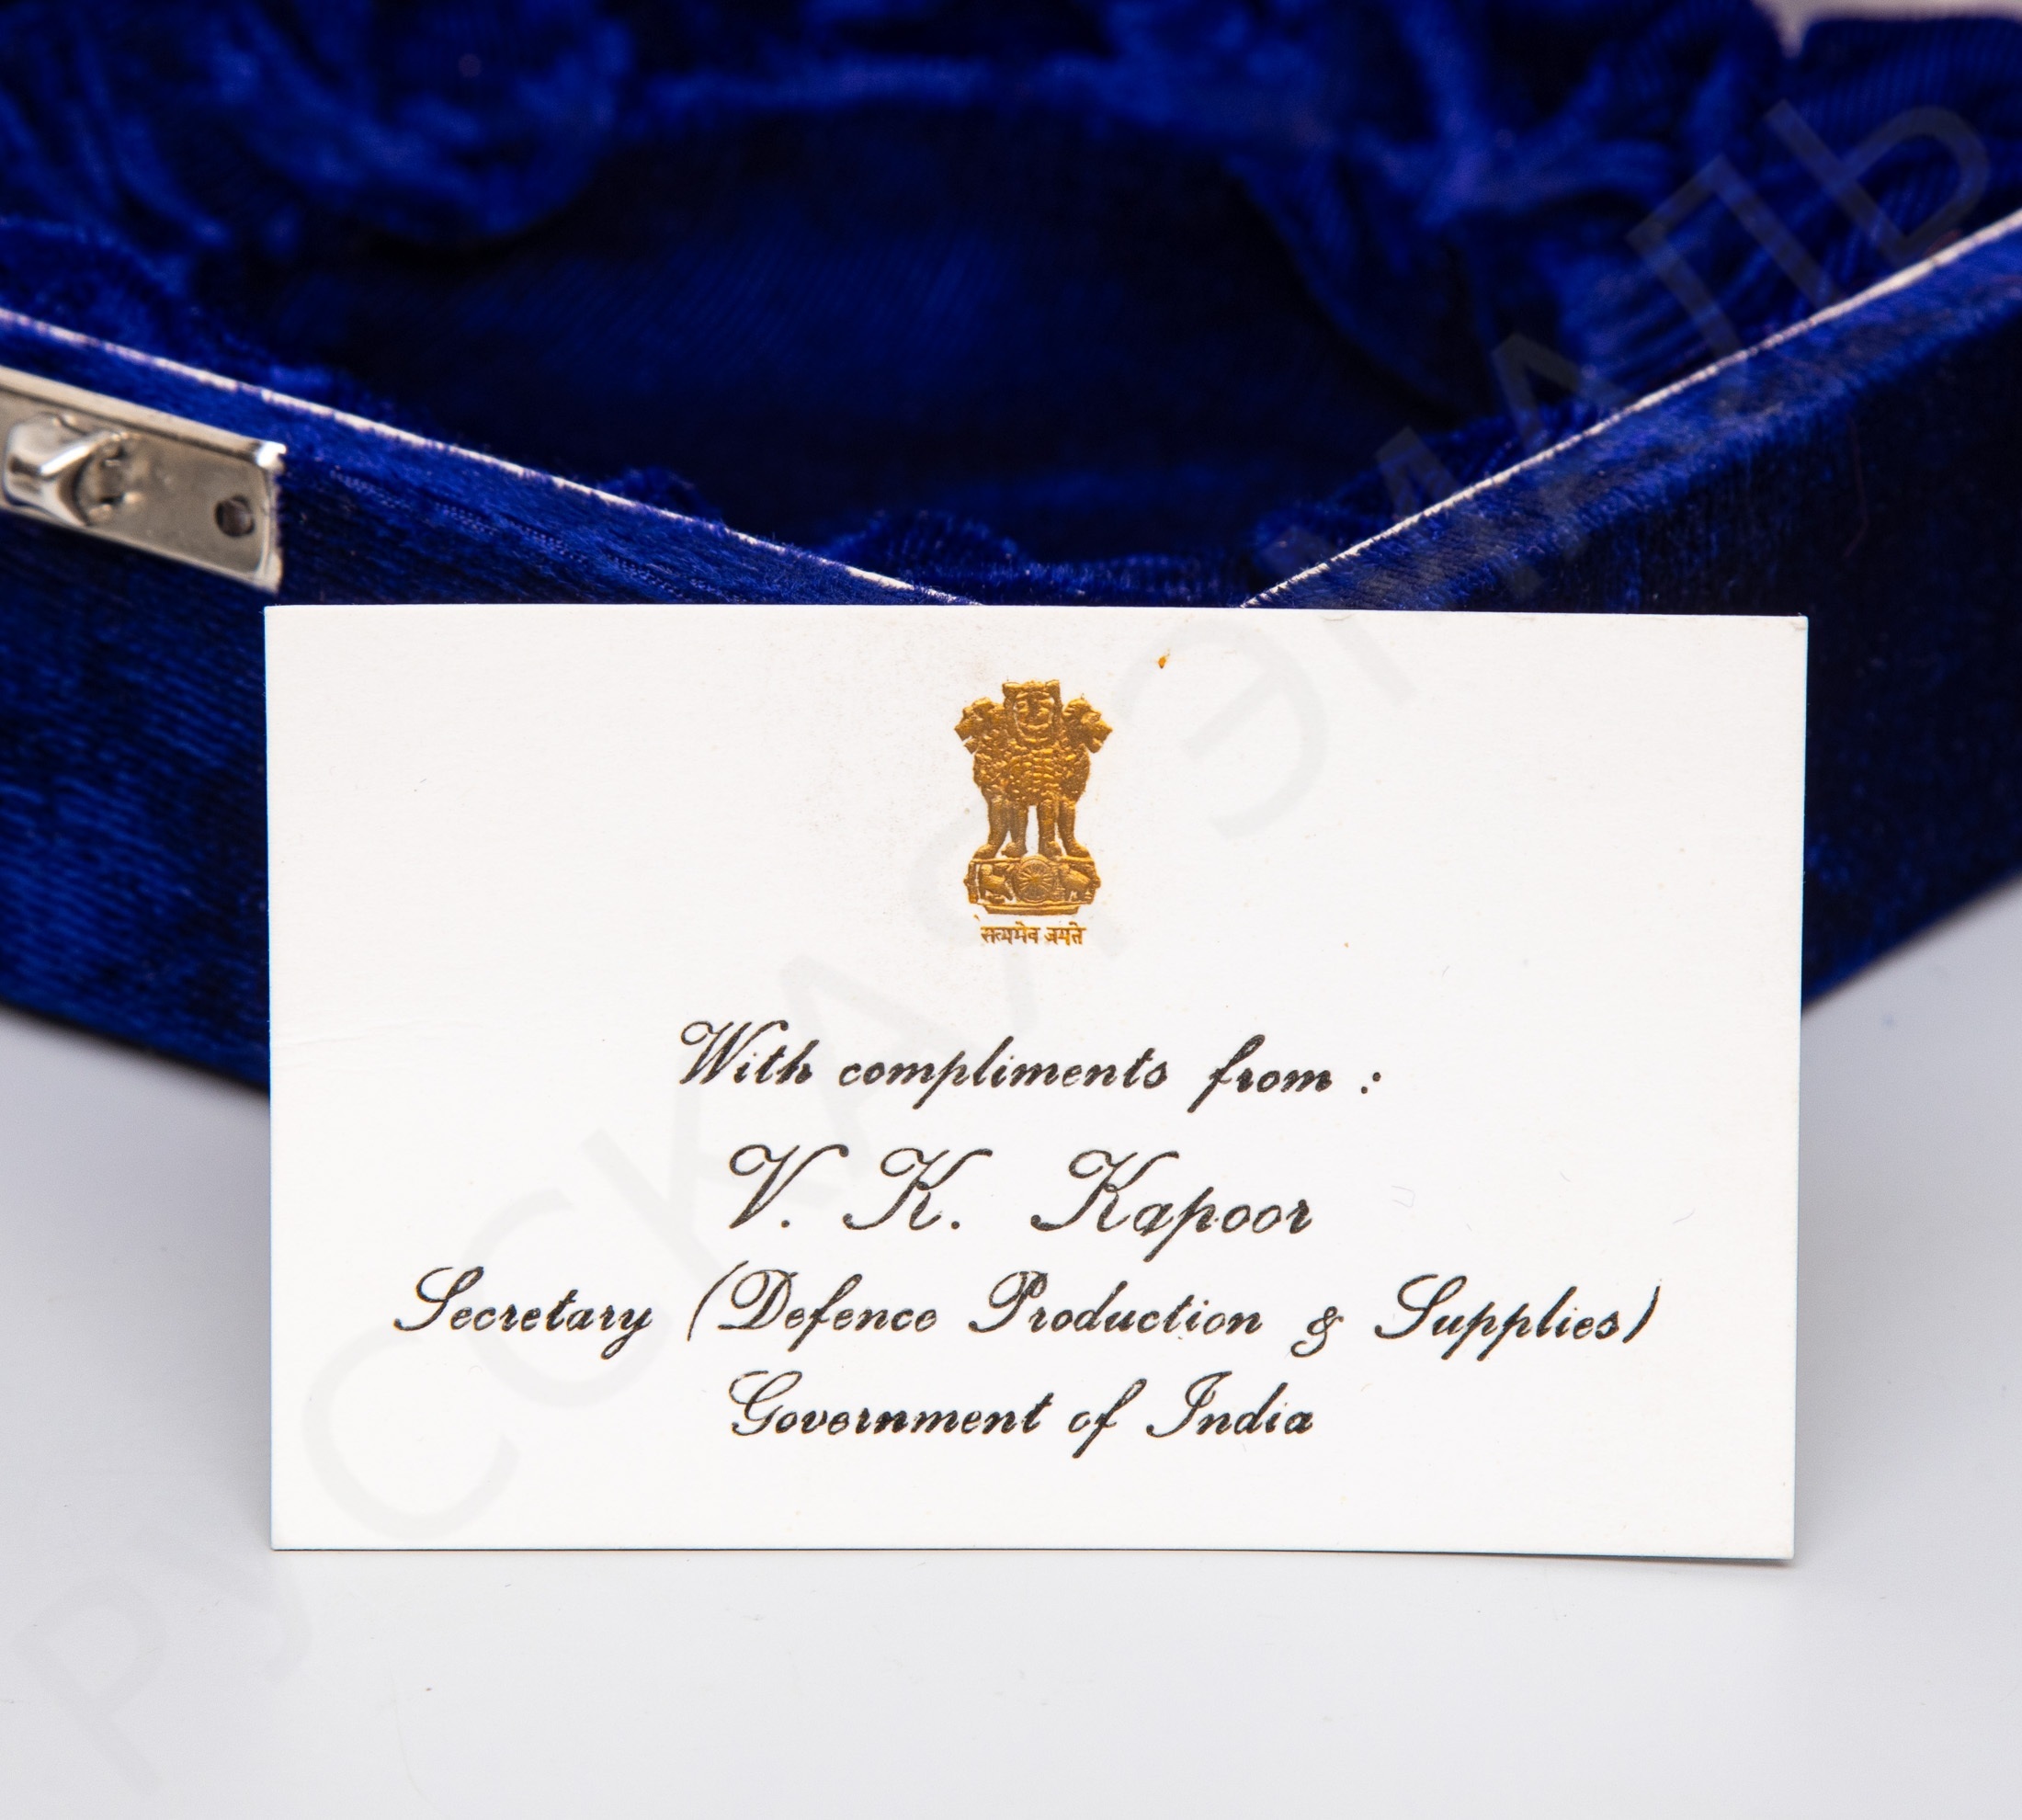 सत्यमेव जयते
With compliments from :
V. K. Kapoor
Secretary (Defence Production & Supplies)
Government of India
РУССКАЯ ЭМАЛЬ